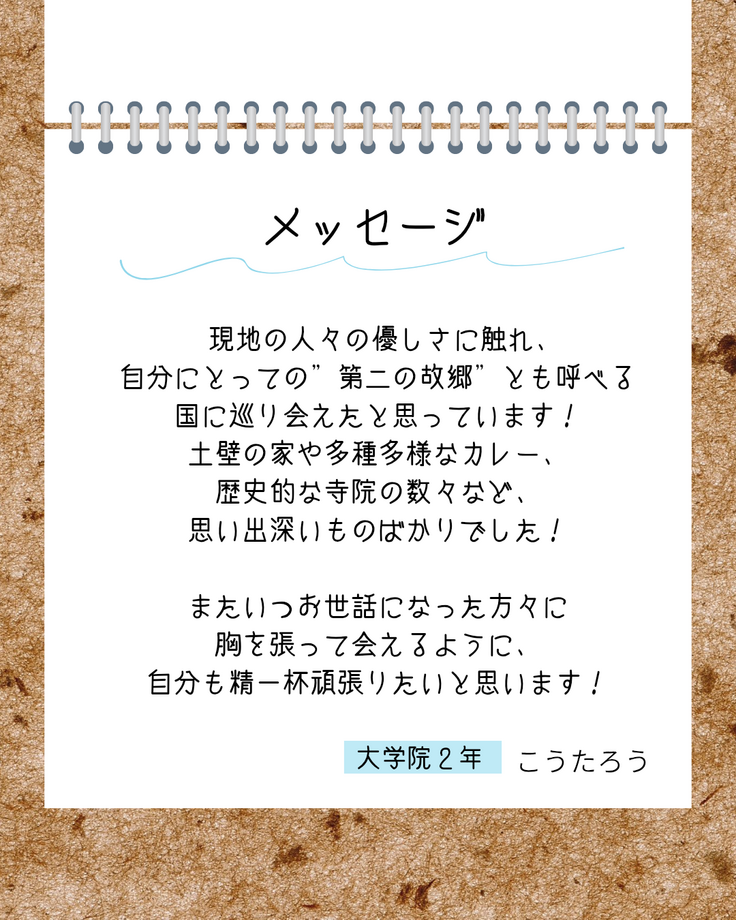 メッセージ
現地の人々の優しさに触れ、
自分にとっての”第二の故郷”とも呼べる
国に巡り会えたと思っています！
土壁の家や多種多様なカレー、
歴史的な寺院の数々など、
思い出深いものばかりでした！
またいつかお世話になった方々に
胸を張って会えるように、
自分も精一杯頑張りたいと思います！
大学院２年 こうたろう